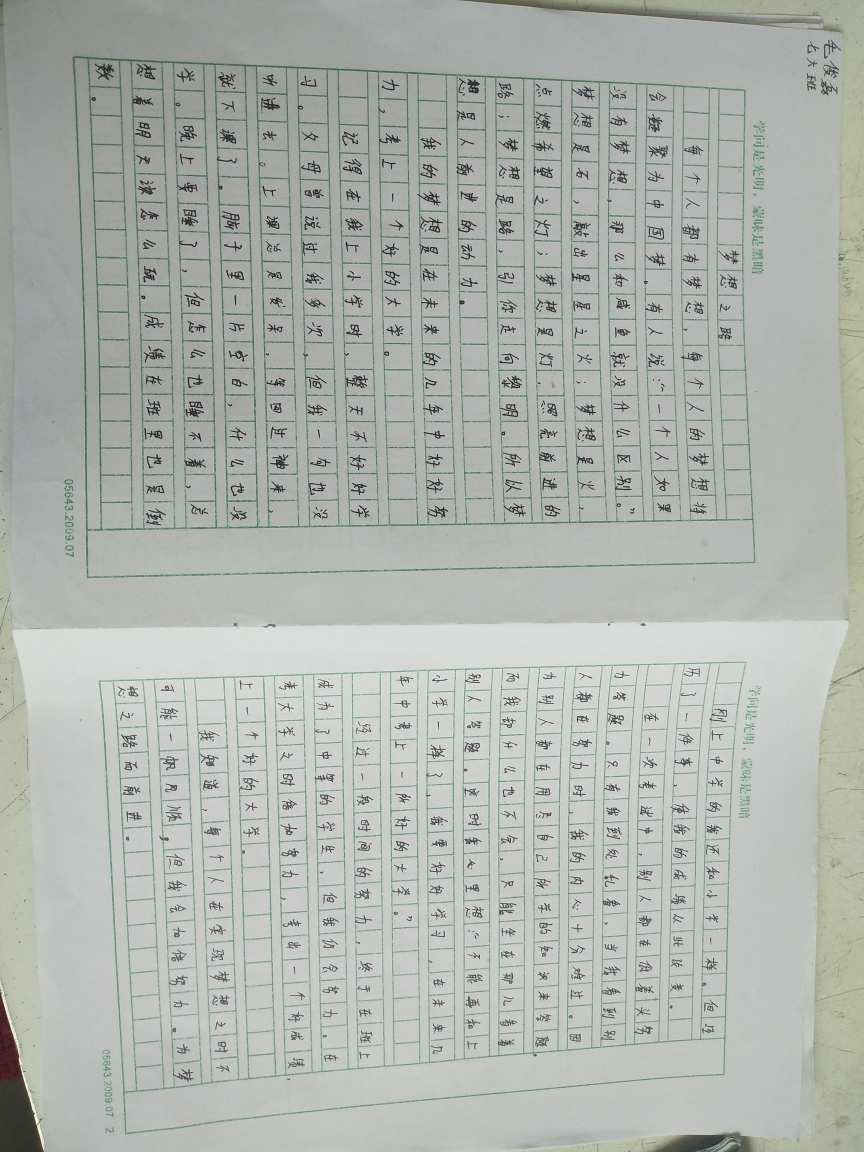 毛俊磊
七六班
学问是光明，蒙昧是黑暗
梦想之路
每个人都有梦想，每个人的梦想将
会凝聚为中国梦。有人说：“一个人如果
没有梦想，那么和咸鱼就没什么区别。”
梦想是石，敲出星星之火；梦想是火，
点燃希望之灯；梦想是灯，照亮前进的
路；梦想是路，引你走向黎明。所以梦
想是人前进的动力。
我的梦想是在未来的几年中好好努
力，考上一个好的大学。
记得在我上小学时，整天不好好学
习。父母曾说过我多次，但我一句也没
听进去。上课总是发呆，等回过神来，
就下课了。脑子里一片空白，什么也没
学。晚上要睡了，但怎么也睡不着，总
想着明天该怎么玩。成绩在班里也是倒
数。
05643.2009.07
学问是光明，蒙昧是黑暗
刚上中学的我还和小学一样。但经
历了一件事，使我的成绩从此改变。
在一次考试中，别人都在低着头努
力答题。只有我到处看，当我看到别
人都在努力时，我的内心十分难过。因
为别人都在用尽自己所学的知识来答题，
而我却什么也不会，只能坐在那儿看着
别人答题。这时我心里想：“不能再和上
小学一样了，我要好好学习，在未来几
年中考上一所好的大学。”
经过一段时间的努力，终于在班上
成为了中等的学生，但我仍会努力。在
考大学之时倍加努力，考出一个好成绩，
上一个好的大学。
我知道，每个人在实现梦想之时不
可能一帆风顺，但我会加倍努力。为梦
想之路而前进。
05643.2009.07 2